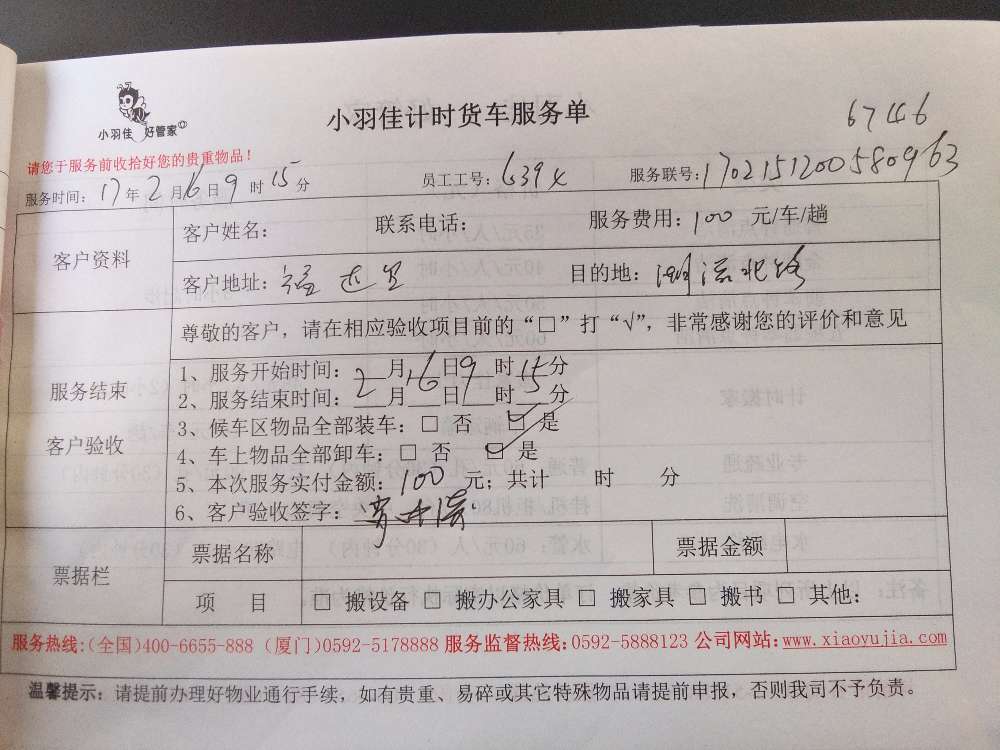 小羽佳 好管家
小羽佳计时货车服务单
6746
请您于服务前收拾好您的贵重物品！
服务时间：17年2月16日9时15分 员工工号：639X 服务联号：1702151200580963
客户资料
客户姓名： 联系电话： 服务费用：100 元/车/趟
客户地址： 目的地：湖滨北路
尊敬的客户，请在相应验收项目前的“□”打“√”，非常感谢您的评价和意见
服务结束
客户验收
1、服务开始时间：2月16日9时15分
2、服务结束时间：__月__日__时__分
3、候车区物品全部装车：□ 否 ☑ 是
4、车上物品全部卸车：□ 否 ☑ 是
5、本次服务实付金额：100 元；共计 时 分
6、客户验收签字：
票据栏
票据名称 票据金额
项 目 □ 搬设备 □ 搬办公家具 □ 搬家具 □ 搬书 □ 其他：
服务热线:(全国)400-6655-888 (厦门)0592-5178888 服务监督热线:0592-5888123 公司网站:www.xiaoyujia.com
温馨提示：请提前办理好物业通行手续，如有贵重、易碎或其它特殊物品请提前申报，否则我司不予负责。